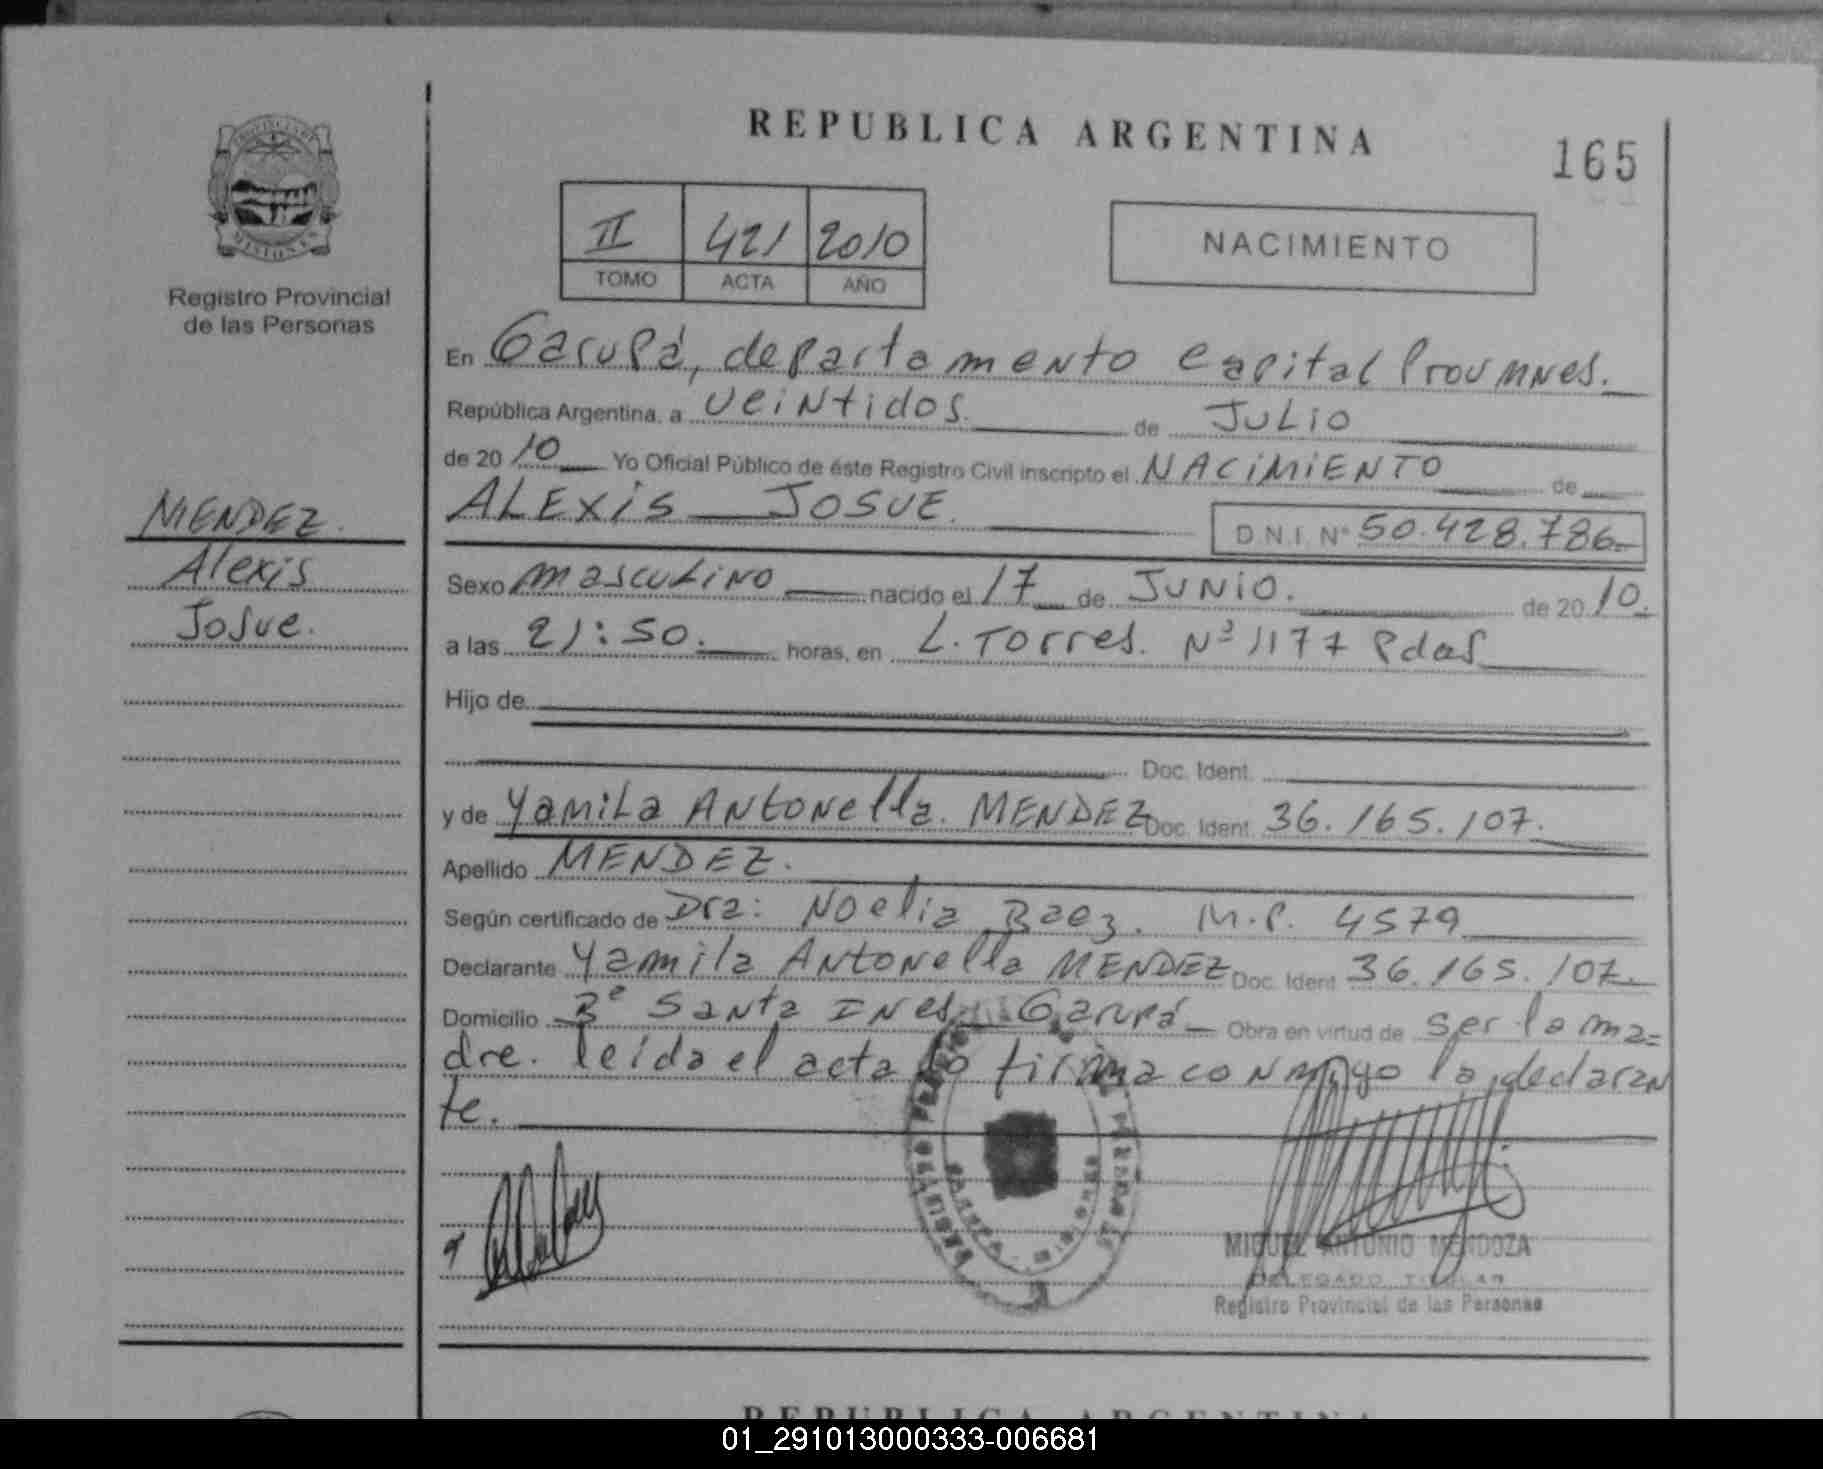 REPUBLICA ARGENTINA
165
PROVINCIA DE
MISIONES
Registro Provincial
de las Personas
II 421 2010
TOMO ACTA AÑO
NACIMIENTO
En Garupá, departamento capital Prov Mnes.
República Argentina, a veintidos. de JULIO
de 20 10 Yo Oficial Público de éste Registro Civil inscripto el NACIMIENTO de
MENDEZ.
Alexis
Josue.
ALEXIS JOSUE. D.N.I. Nº 50.428.786-
Sexo masculino nacido el 17 de JUNIO. de 20 10.
a las 21:50. horas, en L. Torres. Nº 1177 Pdas
Hijo de
Doc. Ident.
y de Yamila Antonella. MENDEZ Doc. Ident. 36.165.107.
Apellido MENDEZ.
Según certificado de Dra: Noelia Baez. M.P. 4579
Declarante Yamila Antonella MENDEZ Doc. Ident. 36.165.107.
Domicilio Bº Santa Ines Garupá Obra en virtud de ser la ma=
dre. leída el acta lo firma conmigo la declaran
te.
MIGUEL ANTONIO MENDOZA
DELEGADO TITULAR
Registro Provincial de las Personas
REPUBLICA ARGENTINA
01_291013000333-006681